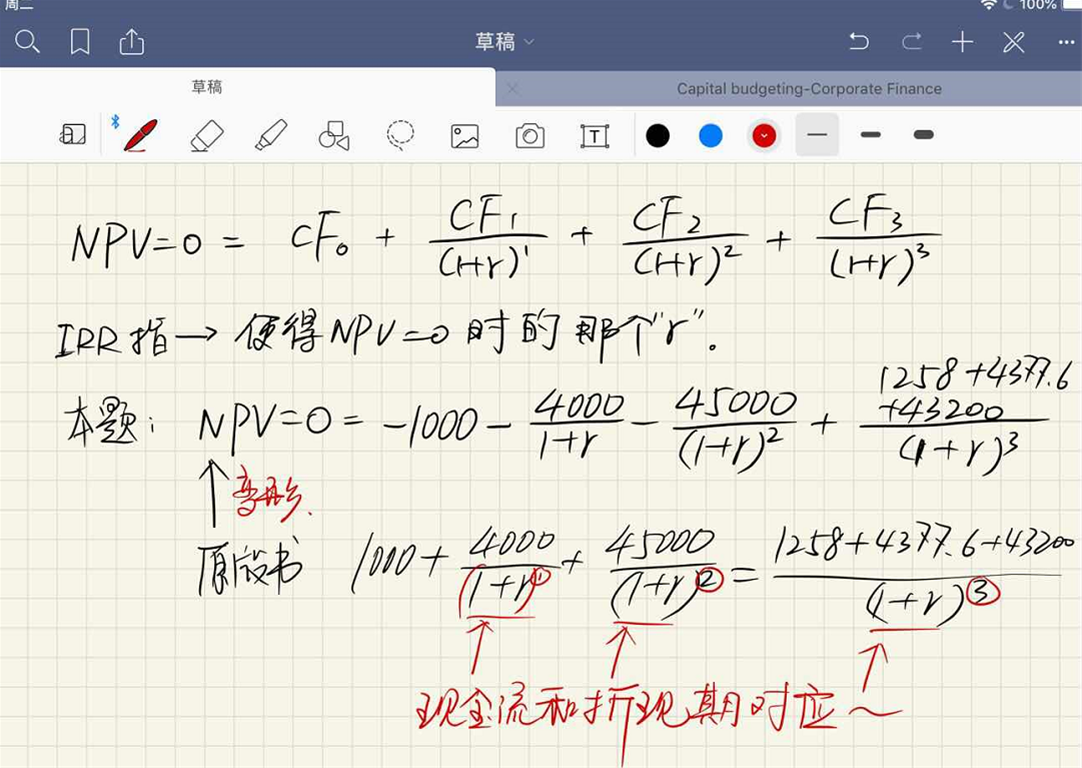 周二
100%
草稿
草稿
Capital budgeting-Corporate Finance
T
NPV=0 = CF₀ + CF₁/(1+r)¹ + CF₂/(1+r)² + CF₃/(1+r)³
IRR指→使得NPV=0时的那个"r"。
本题: NPV=0 = -1000 - 4000/1+r - 45000/(1+r)² + 1258+4377.6+43200/(1+r)³
变形.
原版书 1000 + 4000/(1+r)¹ + 45000/(1+r)² = 1258+4377.6+43200/(1+r)³
现金流和折现期对应~